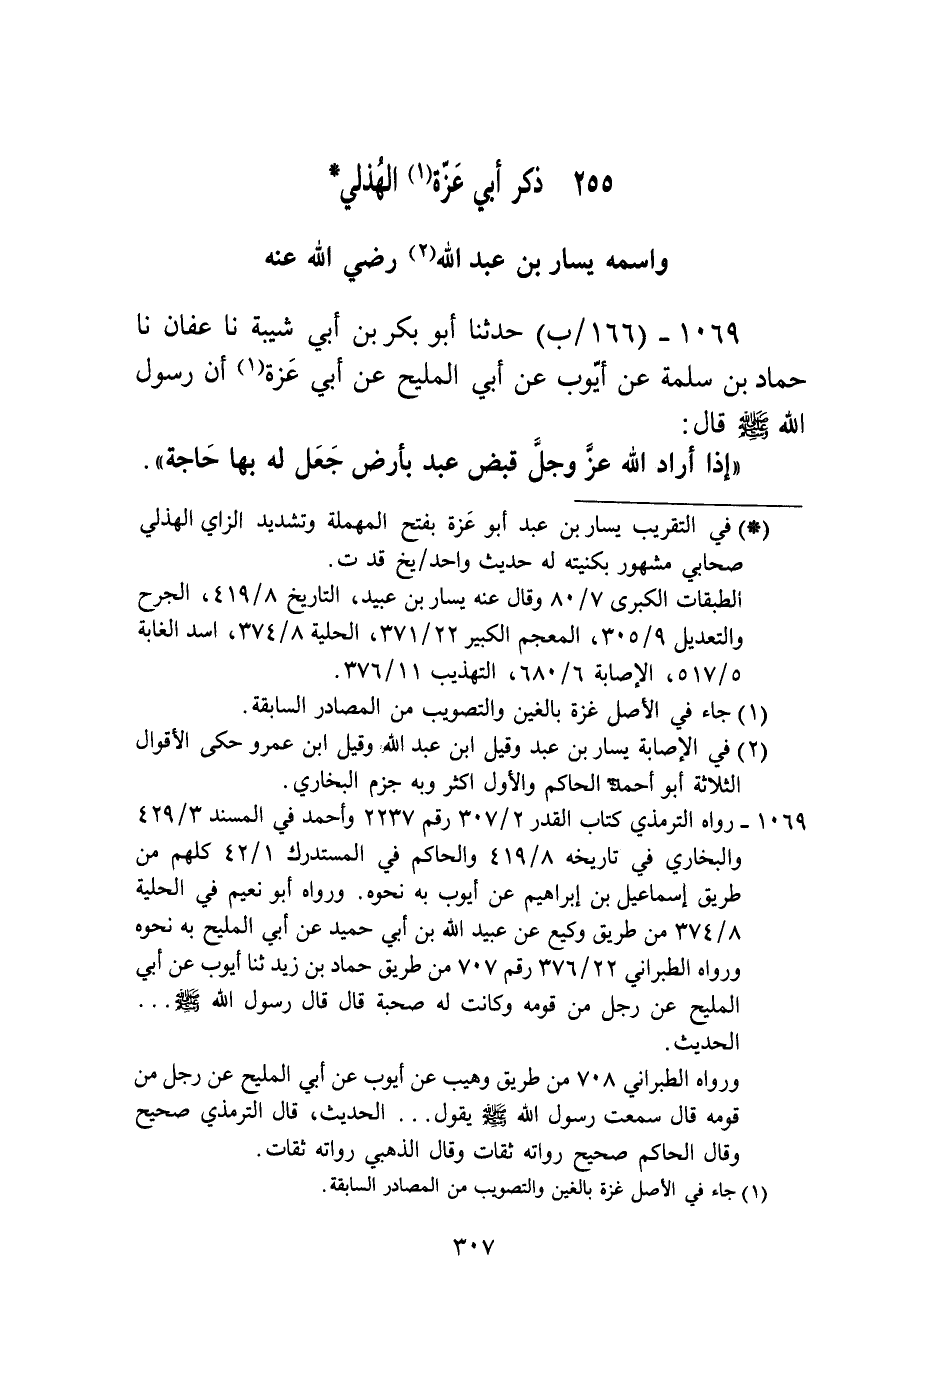 ٢٥٥ ذكر أبي عَزّة(١) الهُذلي*
واسمه يسار بن عبد الله(٢) رضي الله عنه
١٠٦٩ ـ (١٦٦/ب) حدثنا أبو بكر بن أبي شيبة نا عفان نا
حماد بن سلمة عن أيّوب عن أبي المليح عن أبي عَزة(١) أن رسول
الله ﷺ قال:
«إذا أراد الله عزَّ وجلَّ قبض عبد بأرض جَعَل له بها حَاجة».
(*) في التقريب يسار بن عبد أبو عَزة بفتح المهملة وتشديد الزاي الهذلي
صحابي مشهور بكنيته له حديث واحد/يخ قد ت.
الطبقات الكبرى ٨٠/٧ وقال عنه يسار بن عبيد، التاريخ ٤١٩/٨، الجرح
والتعديل ٣٠٥/٩، المعجم الكبير ٣٧١/٢٢، الحلية ٣٧٤/٨، اسد الغابة
٥١٧/٥، الإصابة ٦٨٠/٦، التهذيب ٣٧٦/١١.
(١) جاء في الأصل غزة بالغين والتصويب من المصادر السابقة.
(٢) في الإصابة يسار بن عبد وقيل ابن عبد الله وقيل ابن عمرو حكى الأقوال
الثلاثة أبو أحمد الحاكم والأول اكثر وبه جزم البخاري.
١٠٦٩ ـ رواه الترمذي كتاب القدر ٣٠٧/٢ رقم ٢٢٣٧ وأحمد في المسند ٤٢٩/٣
والبخاري في تاريخه ٤١٩/٨ والحاكم في المستدرك ٤٢/١ كلهم من
طريق إسماعيل بن إبراهيم عن أيوب به نحوه. ورواه أبو نعيم في الحلية
٣٧٤/٨ من طريق وكيع عن عبيد الله بن أبي حميد عن أبي المليح به نحوه
ورواه الطبراني ٣٧٦/٢٢ رقم ٧٠٧ من طريق حماد بن زيد ثنا أيوب عن أبي
المليح عن رجل من قومه وكانت له صحبة قال قال رسول الله ﷺ...
الحديث.
ورواه الطبراني ٧٠٨ من طريق وهيب عن أيوب عن أبي المليح عن رجل من
قومه قال سمعت رسول الله ﷺ يقول... الحديث، قال الترمذي صحيح
وقال الحاكم صحيح رواته ثقات وقال الذهبي رواته ثقات.
(١) جاء في الأصل غزة بالغين والتصويب من المصادر السابقة.
٣٠٧